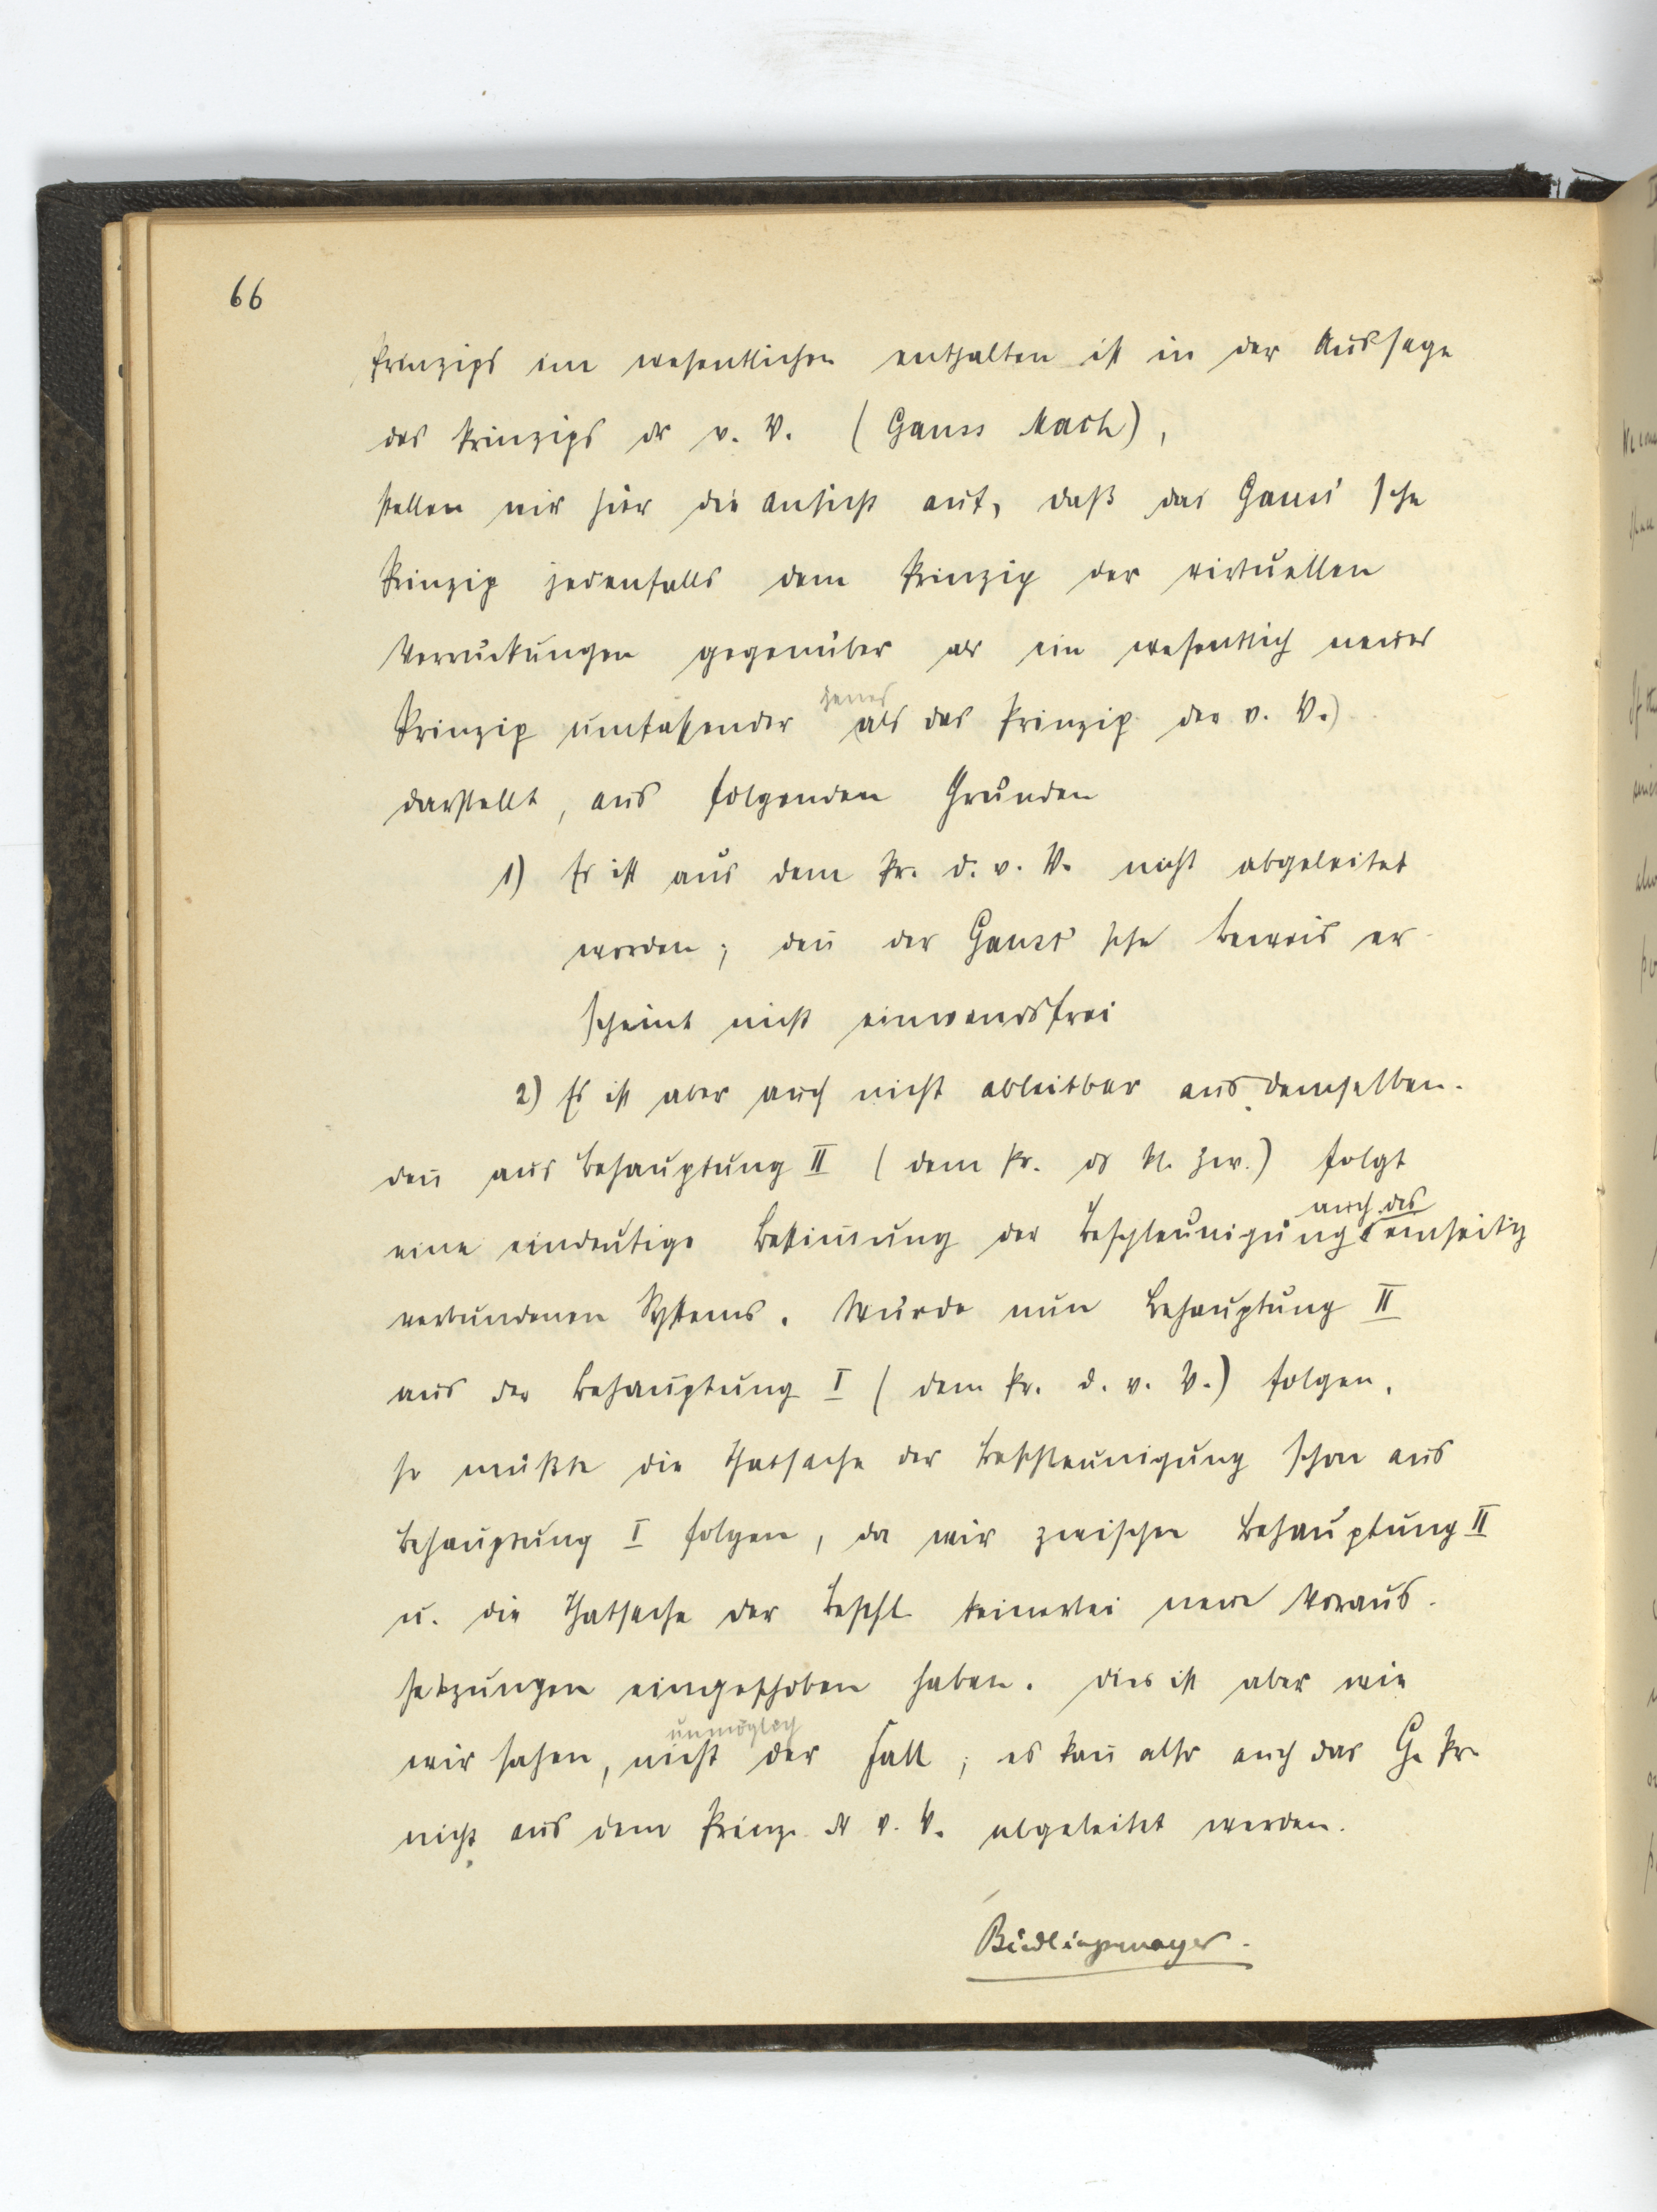 66
Prinzips im wesentlichen enthalten ist in der Aussage
des Prinzips der v. V. (Gauss Mach),
stellen wir hier die Ansicht auf, daß das Gauss'sche
Prinzip jedenfalls dem Prinzip der virtuellen
Verrückungen gegenüber als ein wesentlich neues
jenes
Prinzip umfassender als das Prinzip der v. V.)
darstellt, aus folgenden Gründen
1) Es ist aus dem Pr. d. v. V. nicht abgeleitet
worden; deñ der Gauss'sche Beweis er-
scheint nicht einwandsfrei
2) Es ist aber auch nicht ableitbar aus demselben.
deñ aus Behauptung II (dem Pr. d kl. Zw.) folgt
auch des
eine eindeutige Bestim̄ung der Beschleunigung einseitig
verbundenen Systems. Würde nun Behauptung II
aus der Behauptung I (dem Pr. d. v. V.) folgen,
so müßte die Thatsache der Beschleunigung schon aus
Behauptung I folgen, da wir zwischen Behauptung II
u. die Thatsache der Beschl. keinerlei neue Voraus-
setzungen eingeschoben haben. Dies ist aber wie
unmöglich
wir sahen, nicht der Fall; es kañ also auch das G. Pr.
nicht aus dem Prinz. d v. V. abgeleitet werden.
Bidlingmaier.